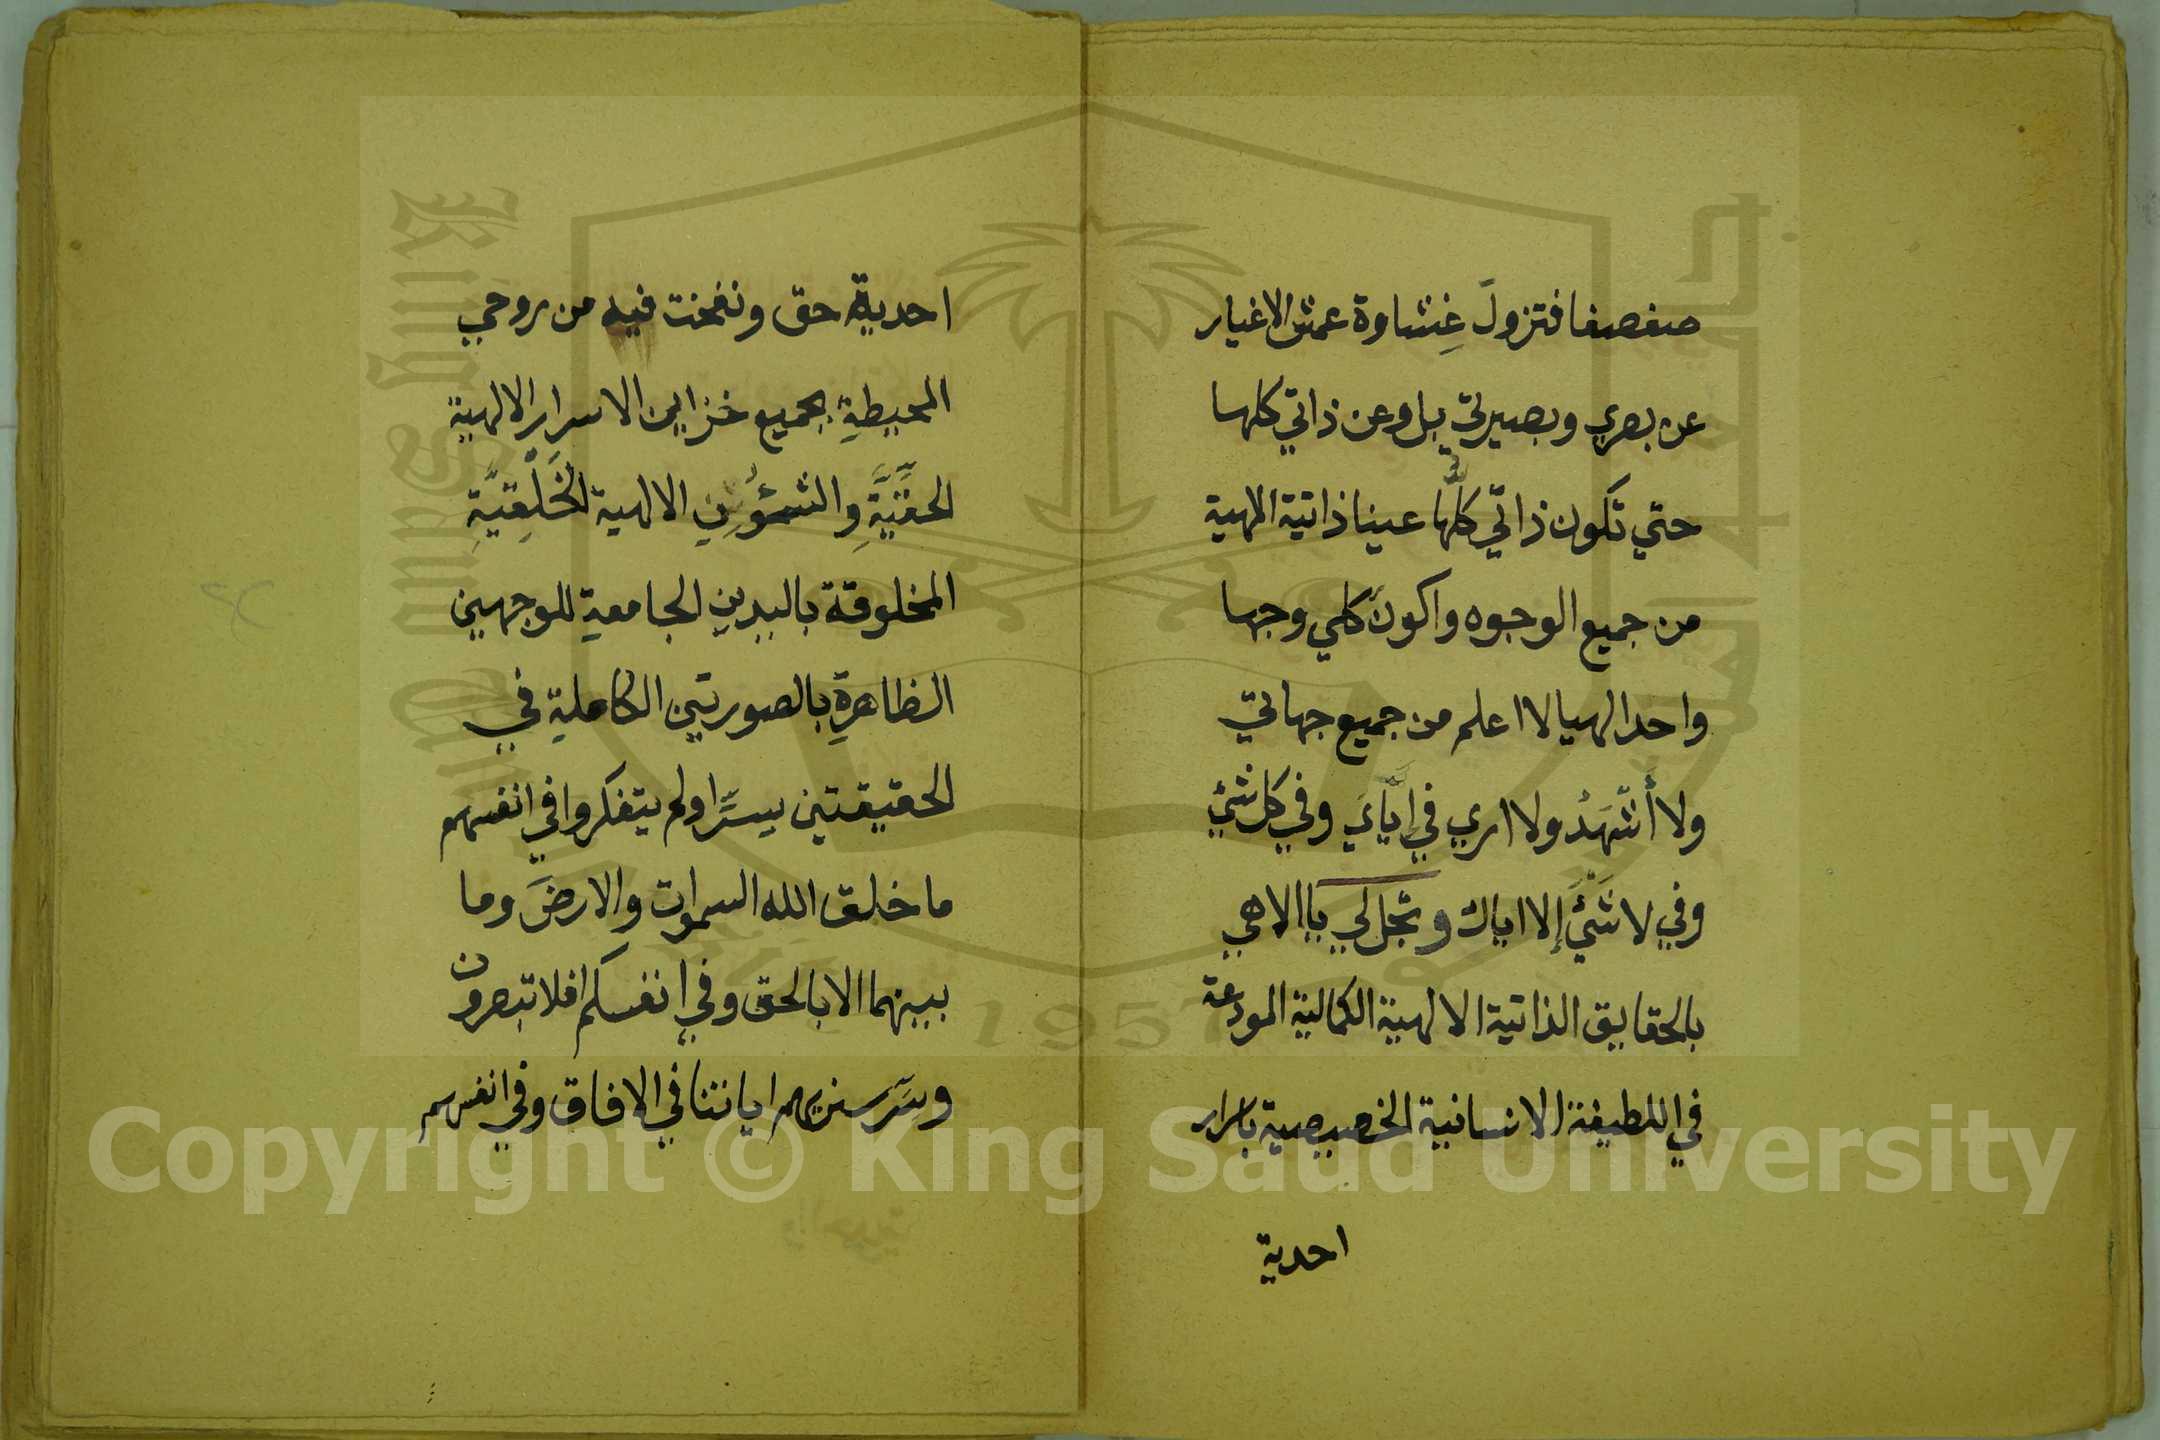 صفصفا فتزولَ غِشاوة عمش الاغيار
عن بصري وبصيرتي بل وعن ذاتي كلها
حتي تكون ذاتي كلّها عينا ذاتية الهية
من جميع الوجوه واكونَ كلي وجها
واحدا الهيا لا اعلم من جميع جهاتي
ولا أَشْهَدُ ولا اري في ايَّايَ وفي كل شئ
وفي لا شَئٍْ إلا اياك وتجل لي يا الاهي
بالحقايق الذاتية الالهية الكمالية المودعة
في اللطيفة الانسانية الخصيصية باسرار
احدية
احدية حق ونفخت فيه من روحي
المحيطةِ بجميع خزاين الاسرار الالهية
الحقّيَّةِ والشؤُنِ الالهية الخَلْقِيَّةِ
المخلوقة باليدين الجامعةِ للوجهين
الظاهرةِ بالصورتين الكاملة في
الحقيقتين بسِرِّ اولم يتفكروا في انفسهم
ما خلق الله السموات والارضَ وما
بينهما الا بالحق وفي انفسكم افلا تبصرون
وسِرِّ سنريهم اياتنا في الافاق وفي انفسهم
King Saud University
1957
Copyright © King Saud University